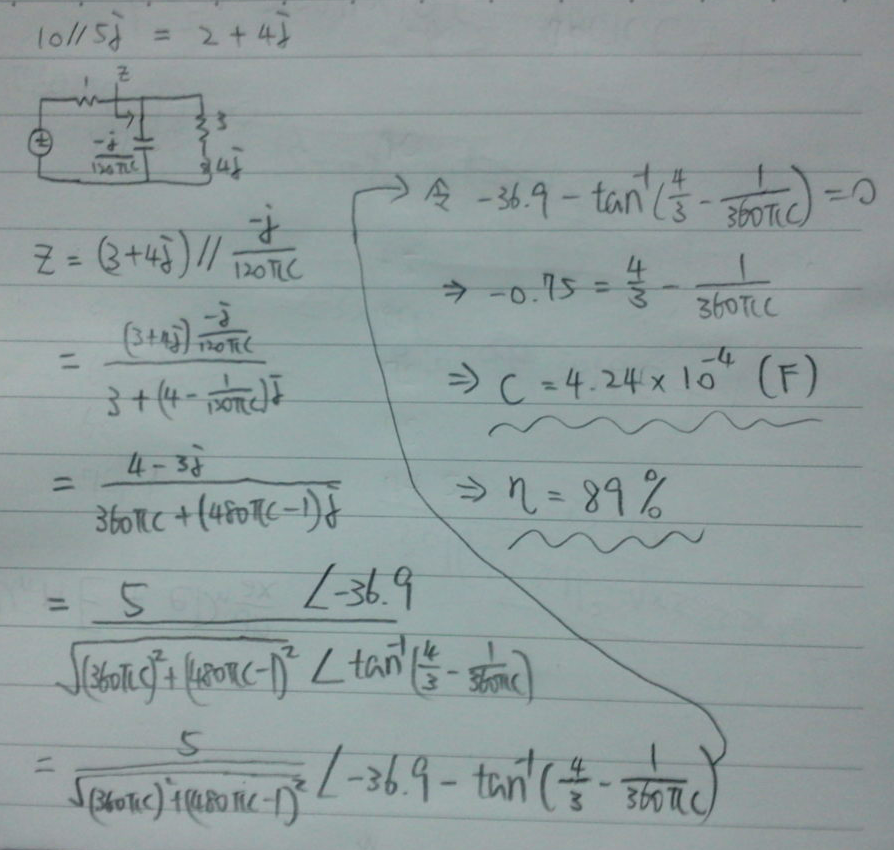 10//5j = 2+4j
1 Z
3
-j/120πC
4j
Z = (3+4j)// -j/120πC
= (3+4j) -j/120πC / 3+(4-1/120πC)j
= 4-3j / 360πC+(480πC-1)j
= 5 ∠-36.9 / √(360πC)²+(480πC-1)² ∠tan⁻¹(4/3 - 1/360πC)
= 5/√(360πC)²+(480πC-1)² ∠-36.9-tan⁻¹(4/3 - 1/360πC)
→ 令 -36.9-tan⁻¹(4/3 - 1/360πC)=0
⇒ -0.75 = 4/3 - 1/360πC
⇒ C = 4.24×10⁻⁴ (F)
⇒ η = 89%